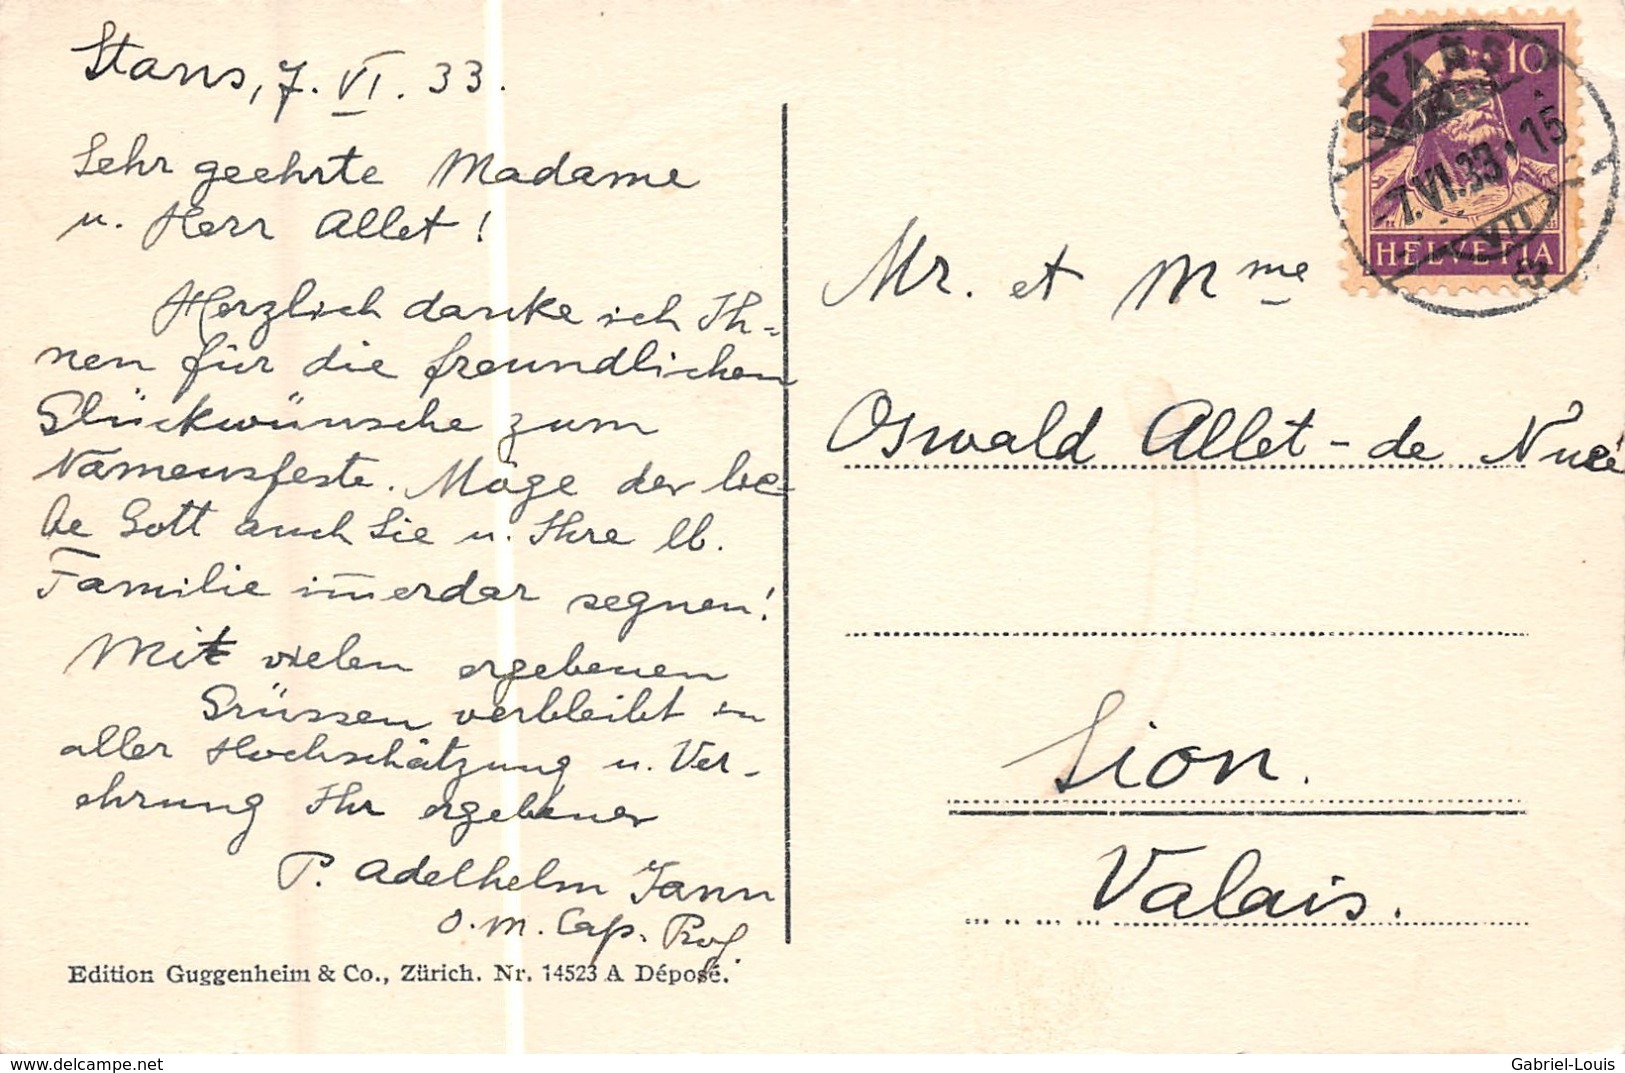 Stans, 7. VI. 33.
Sehr geehrte Madame
u. Herr Allet!
Herzlich danke ich Ih-
nen für die freundlichen
Glückwünsche zum
Namensfeste. Möge der lie-
be Gott auch Sie u. Ihre lb.
Familie im̅erdar segnen!
Mit vielen ergebenen
Grüssen verbleibt in
aller Hochschätzung u. Ver-
ehrung Ihr ergebener
P. Adelhelm Jann
O. M. Cap. Prof.
Edition Guggenheim & Co., Zürich. Nr. 14523 A Déposé.
10
HELVETIA
STANS
-7.VI.33.15
VIII
Mr. et Mme
Oswald Allet-de Nucé
Sion.
Valais.
www.delcampe.net
Gabriel-Louis